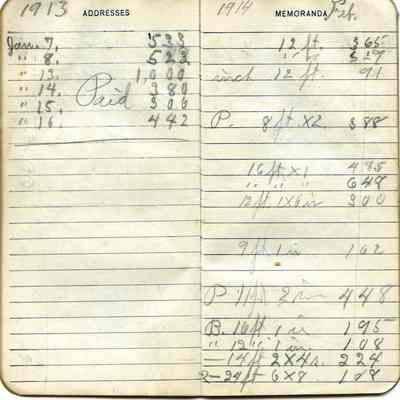 1913 ADDRESSES
Jan. 7. 533
" 8. 523
" 13. 1,000
" 14. 380
" 15. Paid 306
" 16. 442
1914 MEMORANDA Feb.
12 ft. 365
" " 327
inch 12 ft. 91
P. 8 ft X2. 388
16 ft X 1 495
" " " " 648
12 ft. 1X6 in 300
9 ft 1 in 102
P 11 ft 2 in 448
B. 16 ft 1 in 195
" 12 " 1 in. 108
— 14 ft 2X4s. 224
2 — 24 ft 6X8. 108